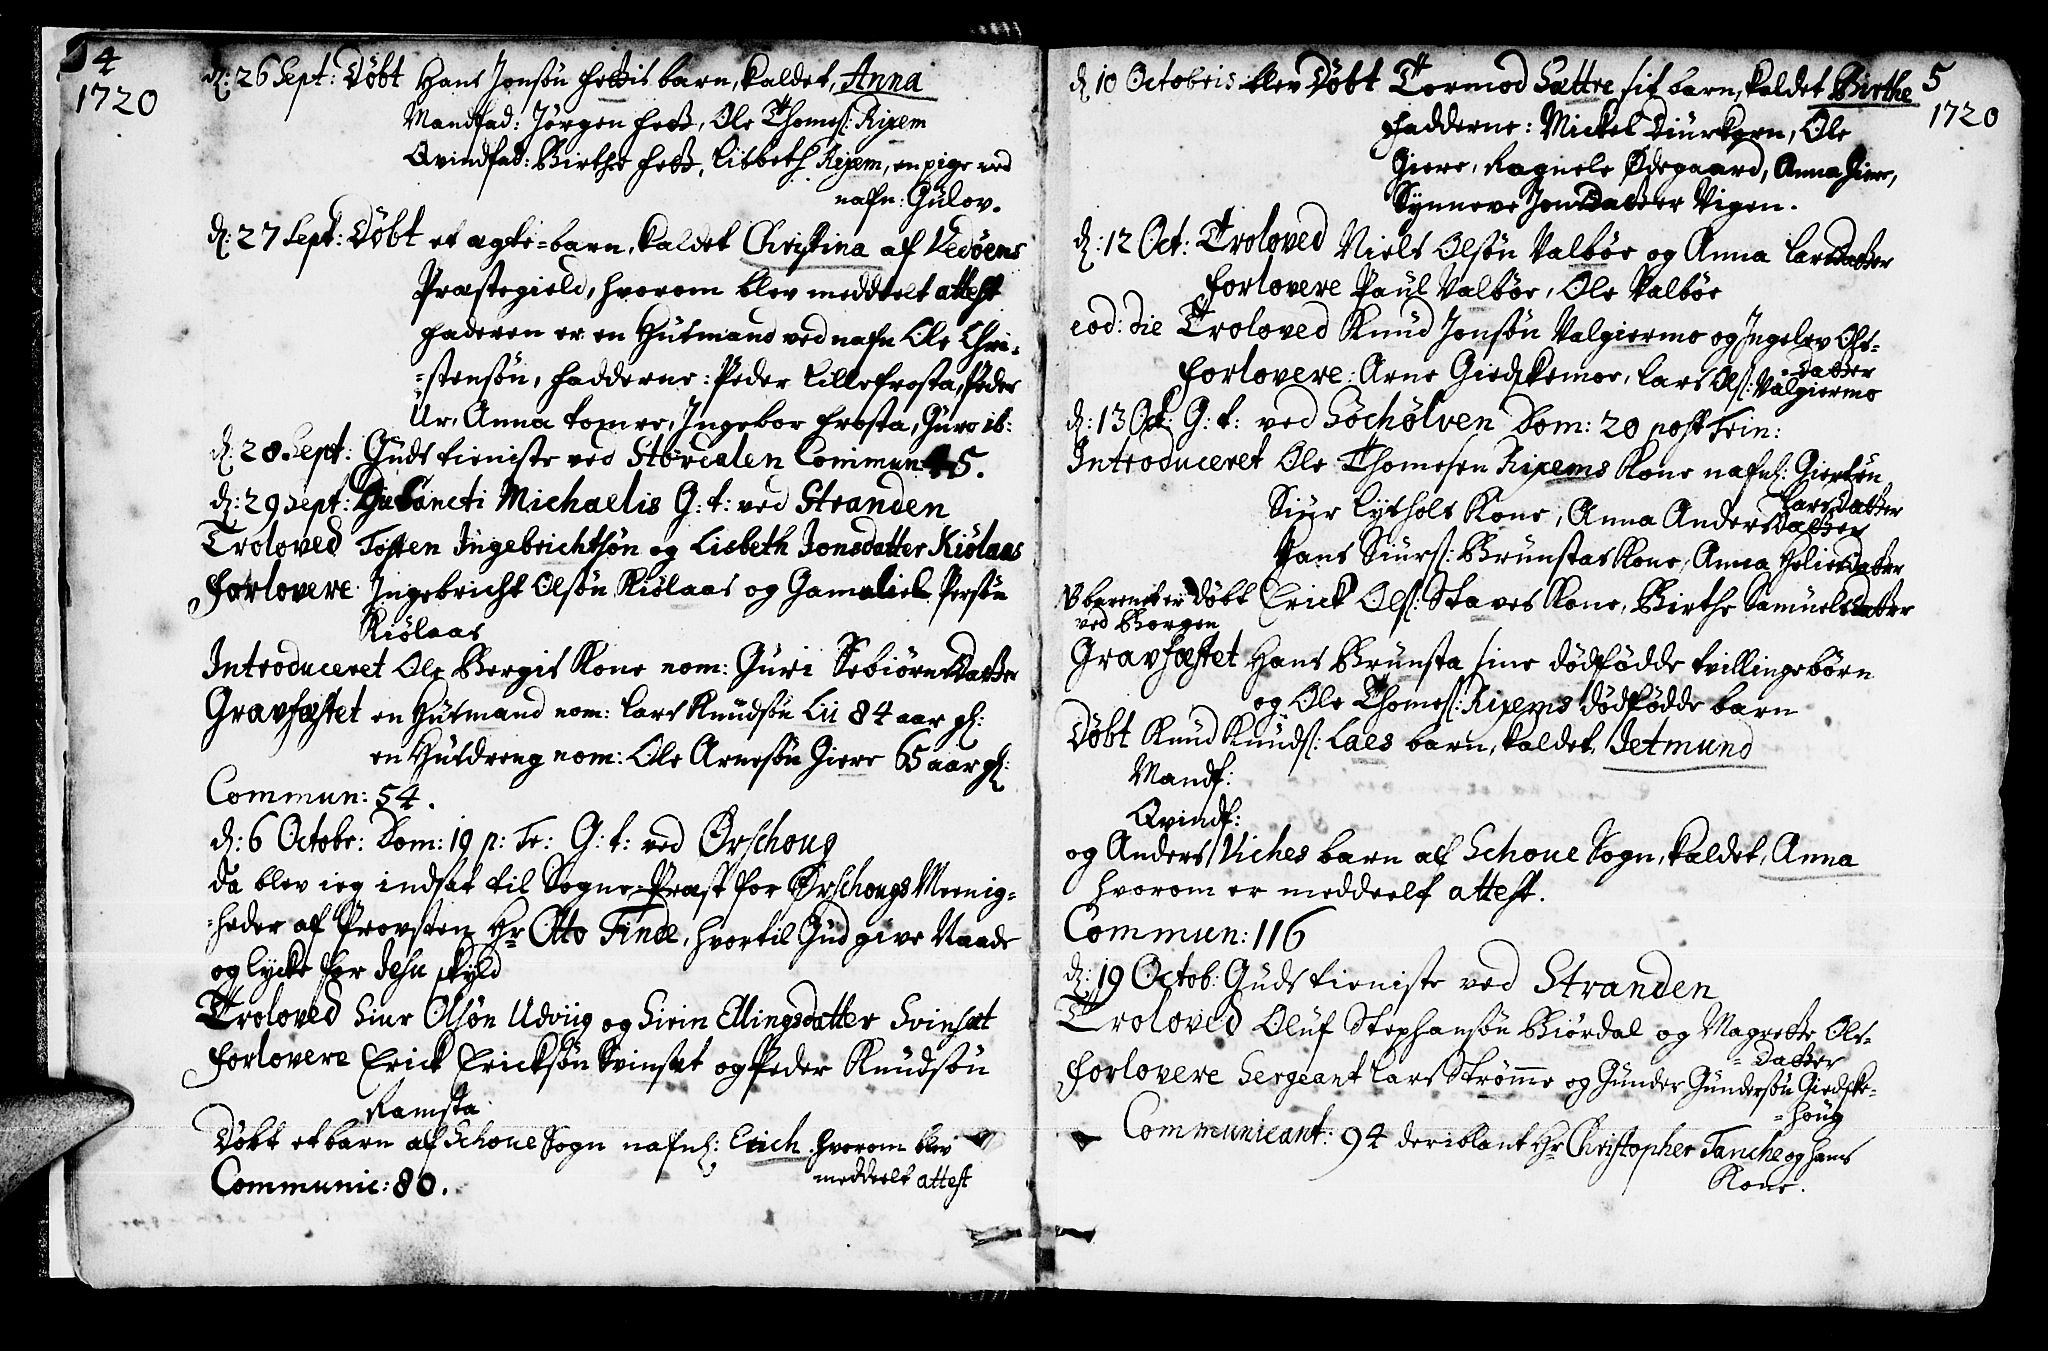 4
1720
d: 26 Sept: Døbt Hans Jonsøn Fettis barn, kaldet, Anna
Mandfad: Jørgen Fett, Ole Thomes: Ripem
Qvindfad: Birthe Fett, Lisbeth Ripem, en pige ved
nafn: Gulov.
d: 27 Sept: Døbt et ægte-barn, kaldet Christina af Vedøens
Præstegield, hvorom blev meddeelt attest
Faderen er en Huusmand ved nafn Ole Chri-
-stensøn, Fadderne: Peder Lillefrosta, Peder
Ur, Anna Tomre, Ingebor Frosta, Guro ib:
d: 28 Sept: Guds tieniste ved Størdalen Commun: 45.
d: 29 Sept: Sancti Michaelis G: t: ved Stranden
Troloved Tosten Ingebrichtsøn og Lisbeth Jonsdatter Kiølaas
Forlovere Ingebricht Olsøn Kiølaas og Gamaliel Persøn
Kiølaas
Introduceret Ole Bergis Kone nom: Guri Sebiørnsdatter
Gravfæstet en Huusmand nom: Lars Knudsøn Lii 84 aar gl:
en Huusdreng nom: Ole Arnesøn Giere 65 aar gl:
Commun: 54.
d: 6 Octobr: Dom: 19 p: Tr: G: t: ved Ørschoug
Da blev ieg indsat til Sogne-Præst for Ørschougs Meenig-
-heder af Provsten Hr Otto Finde, hvortil Gud give Naade
og lycke for Jesu skyld
Troloved Siur Olsøn Udviig og Sirin Ellingsdatter Svinsæt
Forlovere Erick Ericksøn Svinsæt og Peder Knudsøn
Ramsta
Døbt et barn af Schoue Sogn nafnl: Erich hvorom blev
meddeelt attest
Communic: 80.
5
1720
d 10 Octobris blev Døbt Tormod Sættre sit barn, kaldet Birthe
Fadderne: Mickel Diurkorn, Ole
Giere, Ragnele Ødegaard, Anna Giere,
Synneve Jonsdatter Vigen.
d: 12 Oct: Troloved Niels Olsøn Valbøe og Anna Larsdatter
Forlovere Paul Valbøe, Ole Valbøe
eod: die Troloved Knud Jonsøn Valgiermo og Ingelev Ols-
-datter
Forlovere: Arne Giedskemoe, Lars Ols: Valgiermo
d: 13 Oct: G: t: ved Søchølven Dom: 20 post Trin:
Introduceret Ole Thomesen Ripems Kone nafnl: Giertøn
Larsdatter
Siur Lythols Kone, Anna Andersdatter
Hans Siurs: Brunstas Kone, Anna Heliesdatter
NB barnet er Døbt Erick Ols: Staves Kone, Birthe Samuelsdatter
ved Borgen
Gravfæstet Hans Brunsta sine dødfødde tvillingebørn
og Ole Thomes: Ripems dødfødde barn
Døbt Knud Knuds: Laes barn, kaldet, Jetmund
Mandf:
Qvindf:
og Anders Viches barn af Schoue Sogn, kaldet, Anna
hvorom er meddeelt attest.
Commun: 116
d: 19 Octob: Guds tieniste ved Stranden
Troloved Oluf Stephansøn Biørdal og Magrette Ols-
-datter
Forlovere Sergeant Lars Strømme og Gunder Gundersøn Giedske-
-houg
Communicant: 94 deriblant Hr Christopher Tanche og hans
Kone.